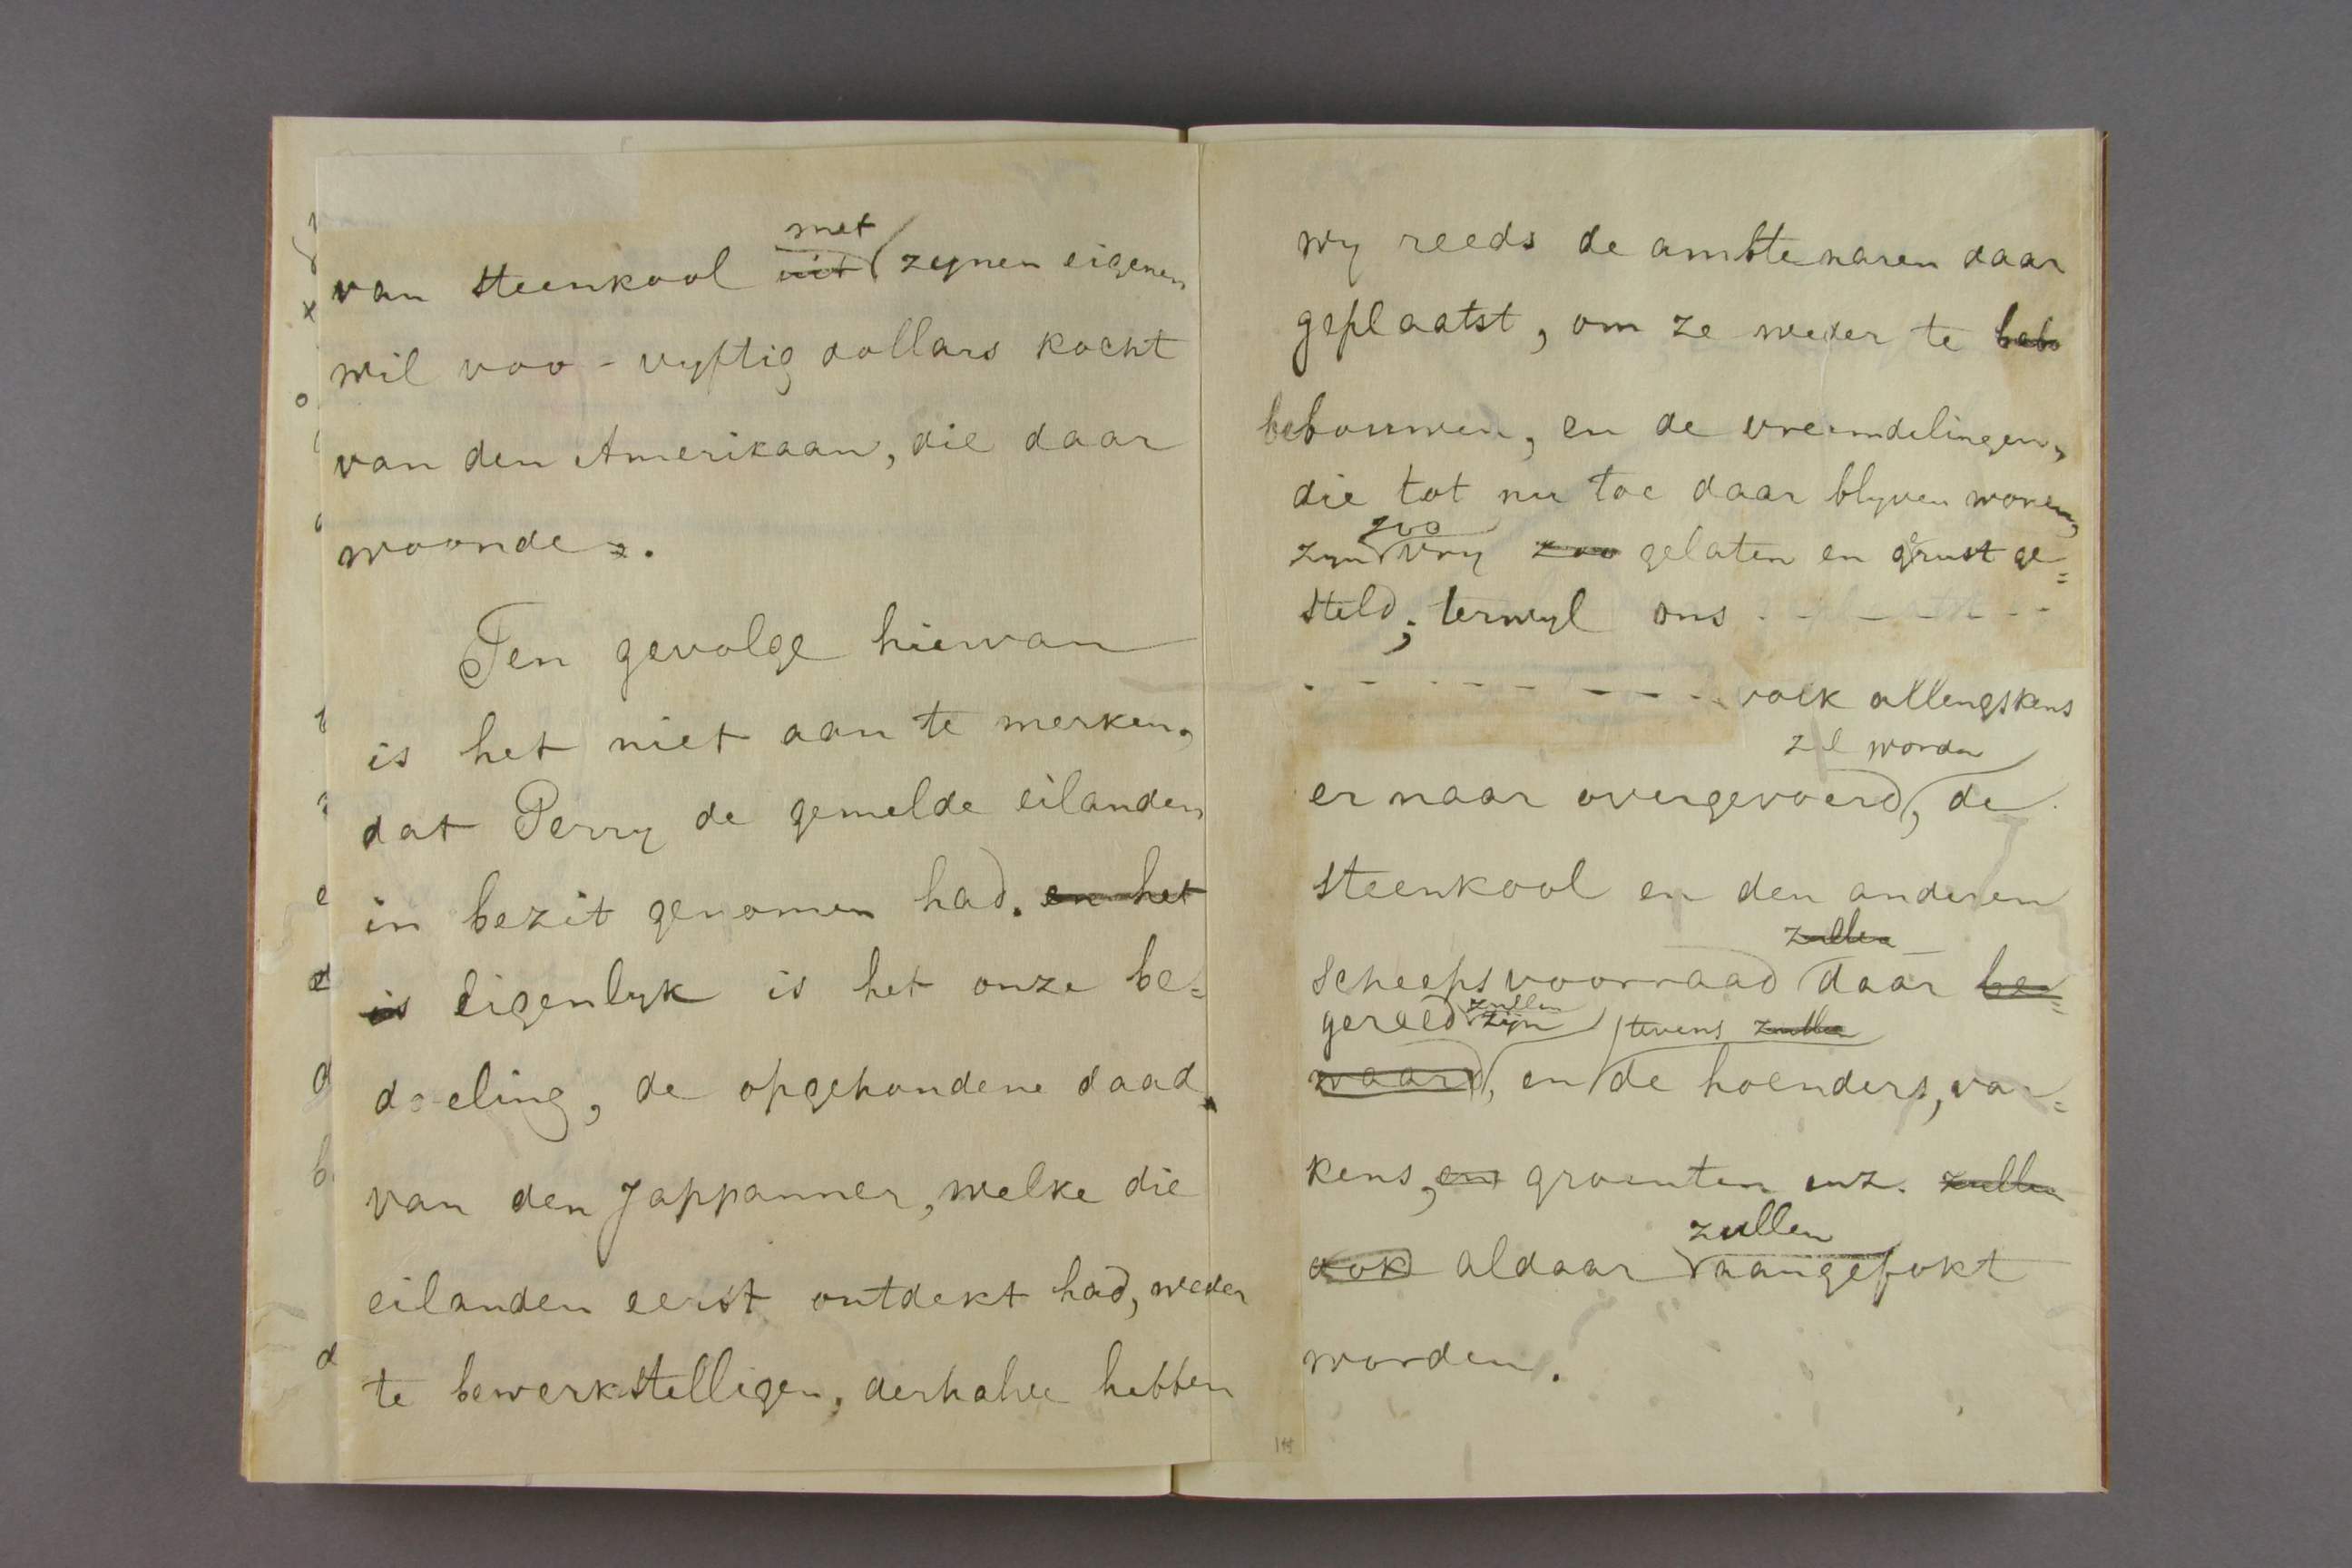 van steenkool uit met zynen eigenen
wil voo - vyftig dollars kocht
van den Amerikaan, die daar
woonde.
Ten gevolge hiervan
is het niet aan te merken,
dat Perry de gemelde eilanden
in bezit genomen had. en het
is eigenlyk is het onze be=
doeling, de opgehondene daad
van den Jappanner, welke die
eilanden eerst ontdekt had, weder
te bewerkstelligen, derhalve hebben
wy reeds de ambtenaren daar
geplaatst, om ze weder te bebo
bebouwen, en de vreemdelingen,
die tot nu toe daar blyven wonen,
zyn zoo vry zoo gelaten en gerust ge=
steld; terwyl ons - - - - - -
- - - - - - - - - volk allengskens
zal worden
er naar overgevoerd, de
steenkool en den anderen
zullen
scheepsvoorraad daar be=
gereed zullen zijn tevens zullen
waard, en de hoenders, var=
kens, en groenten enz. zullen
zullen
ook aldaar aangefokt
worden.